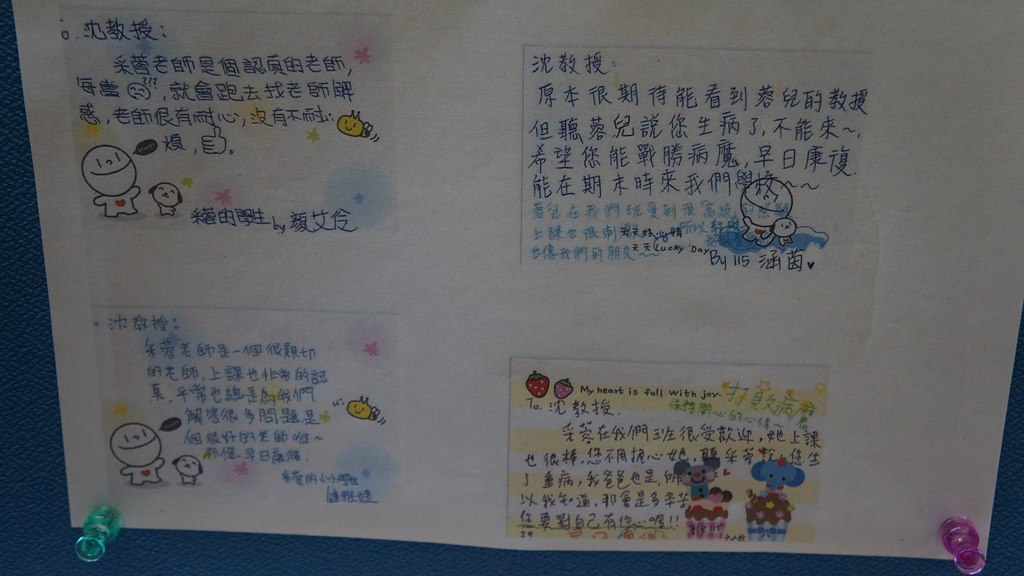 沈教授：
采蓉老師是個認真的老師，
每當，就會跑去找老師解
惑，老師很有耐心，沒有不耐
煩，
采蓉的學生by
沈教授：
原本很期待能看到蓉兒的教授
但聽蓉兒說您生病了，不能來~，
希望您能戰勝病魔，早日康復
能在期末時來我們學校~~
蓉兒在我們班受到很
上課也很 天天好心情 所以教授
也像我們的朋友~~ 天天Lucky Day
By 115 涵茵♥
沈教授：
采蓉老師是一個很親切
的老師，上課也非常的認
真，平常也總是為我們
解答很多問題是
個很好的老師唷~
祝您 早日康復
采蓉的小小學生
Hi
My heart is full with joy. 打敗病魔
To. 沈教授. 保持開心的心情
采蓉在我們班很受歡迎，她上課
也很棒，您不用擔心她，聽采蓉說，您生
了重病，我爸爸也是
以我知道，那會是多辛苦
您要對自己有信心喔!!